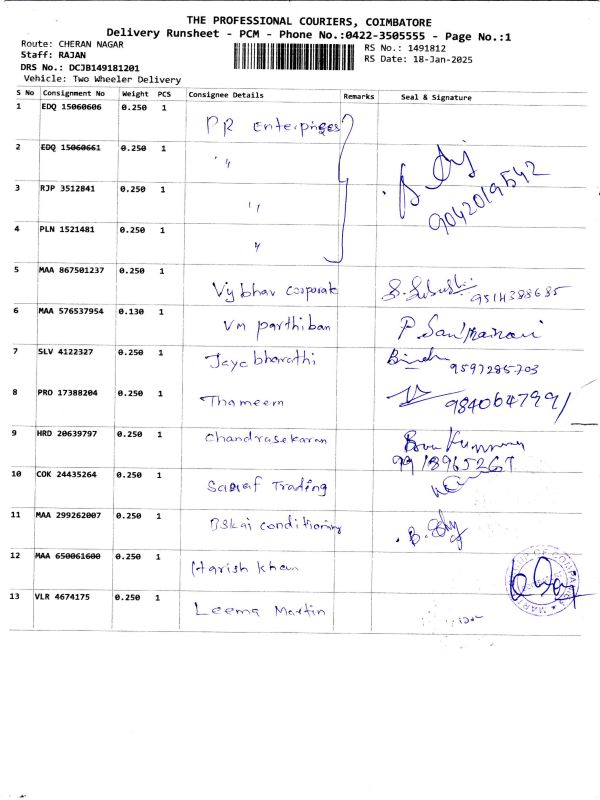 THE PROFESSIONAL COURIERS, COIMBATORE
Delivery Runsheet - PCM - Phone No.:0422-3505555 - Page No.:1
Route: CHERAN NAGAR
RS No.: 1491812
Staff: RAJAN
RS Date: 18-Jan-2025
DRS No.: DCJB149181201
Vehicle: Two Wheeler Delivery
S No Consignment No Weight PCS Consignee Details Remarks Seal & Signature
1 EDQ 15060606 0.250 1 PR Enterprises
2 EDQ 15060661 0.250 1 "
3 RJP 3512841 0.250 1 " 9042019542
4 PLN 1521481 0.250 1 "
5 MAA 867501237 0.250 1 Vybhav corporate 9514388685
6 MAA 576537954 0.130 1 VM parthiban
7 SLV 4122327 0.250 1 Jaya bharathi 9597285703
8 PRO 17388204 0.250 1 Thameem 9840647991
9 HRD 20639797 0.250 1 Chandrasekaran 9918965267
10 COK 24435264 0.250 1 Saraf Trading
11 MAA 299262007 0.250 1 Bskai conditioning
12 MAA 650061600 0.250 1 Harish khan
13 VLR 4674175 0.250 1 Leema Martin